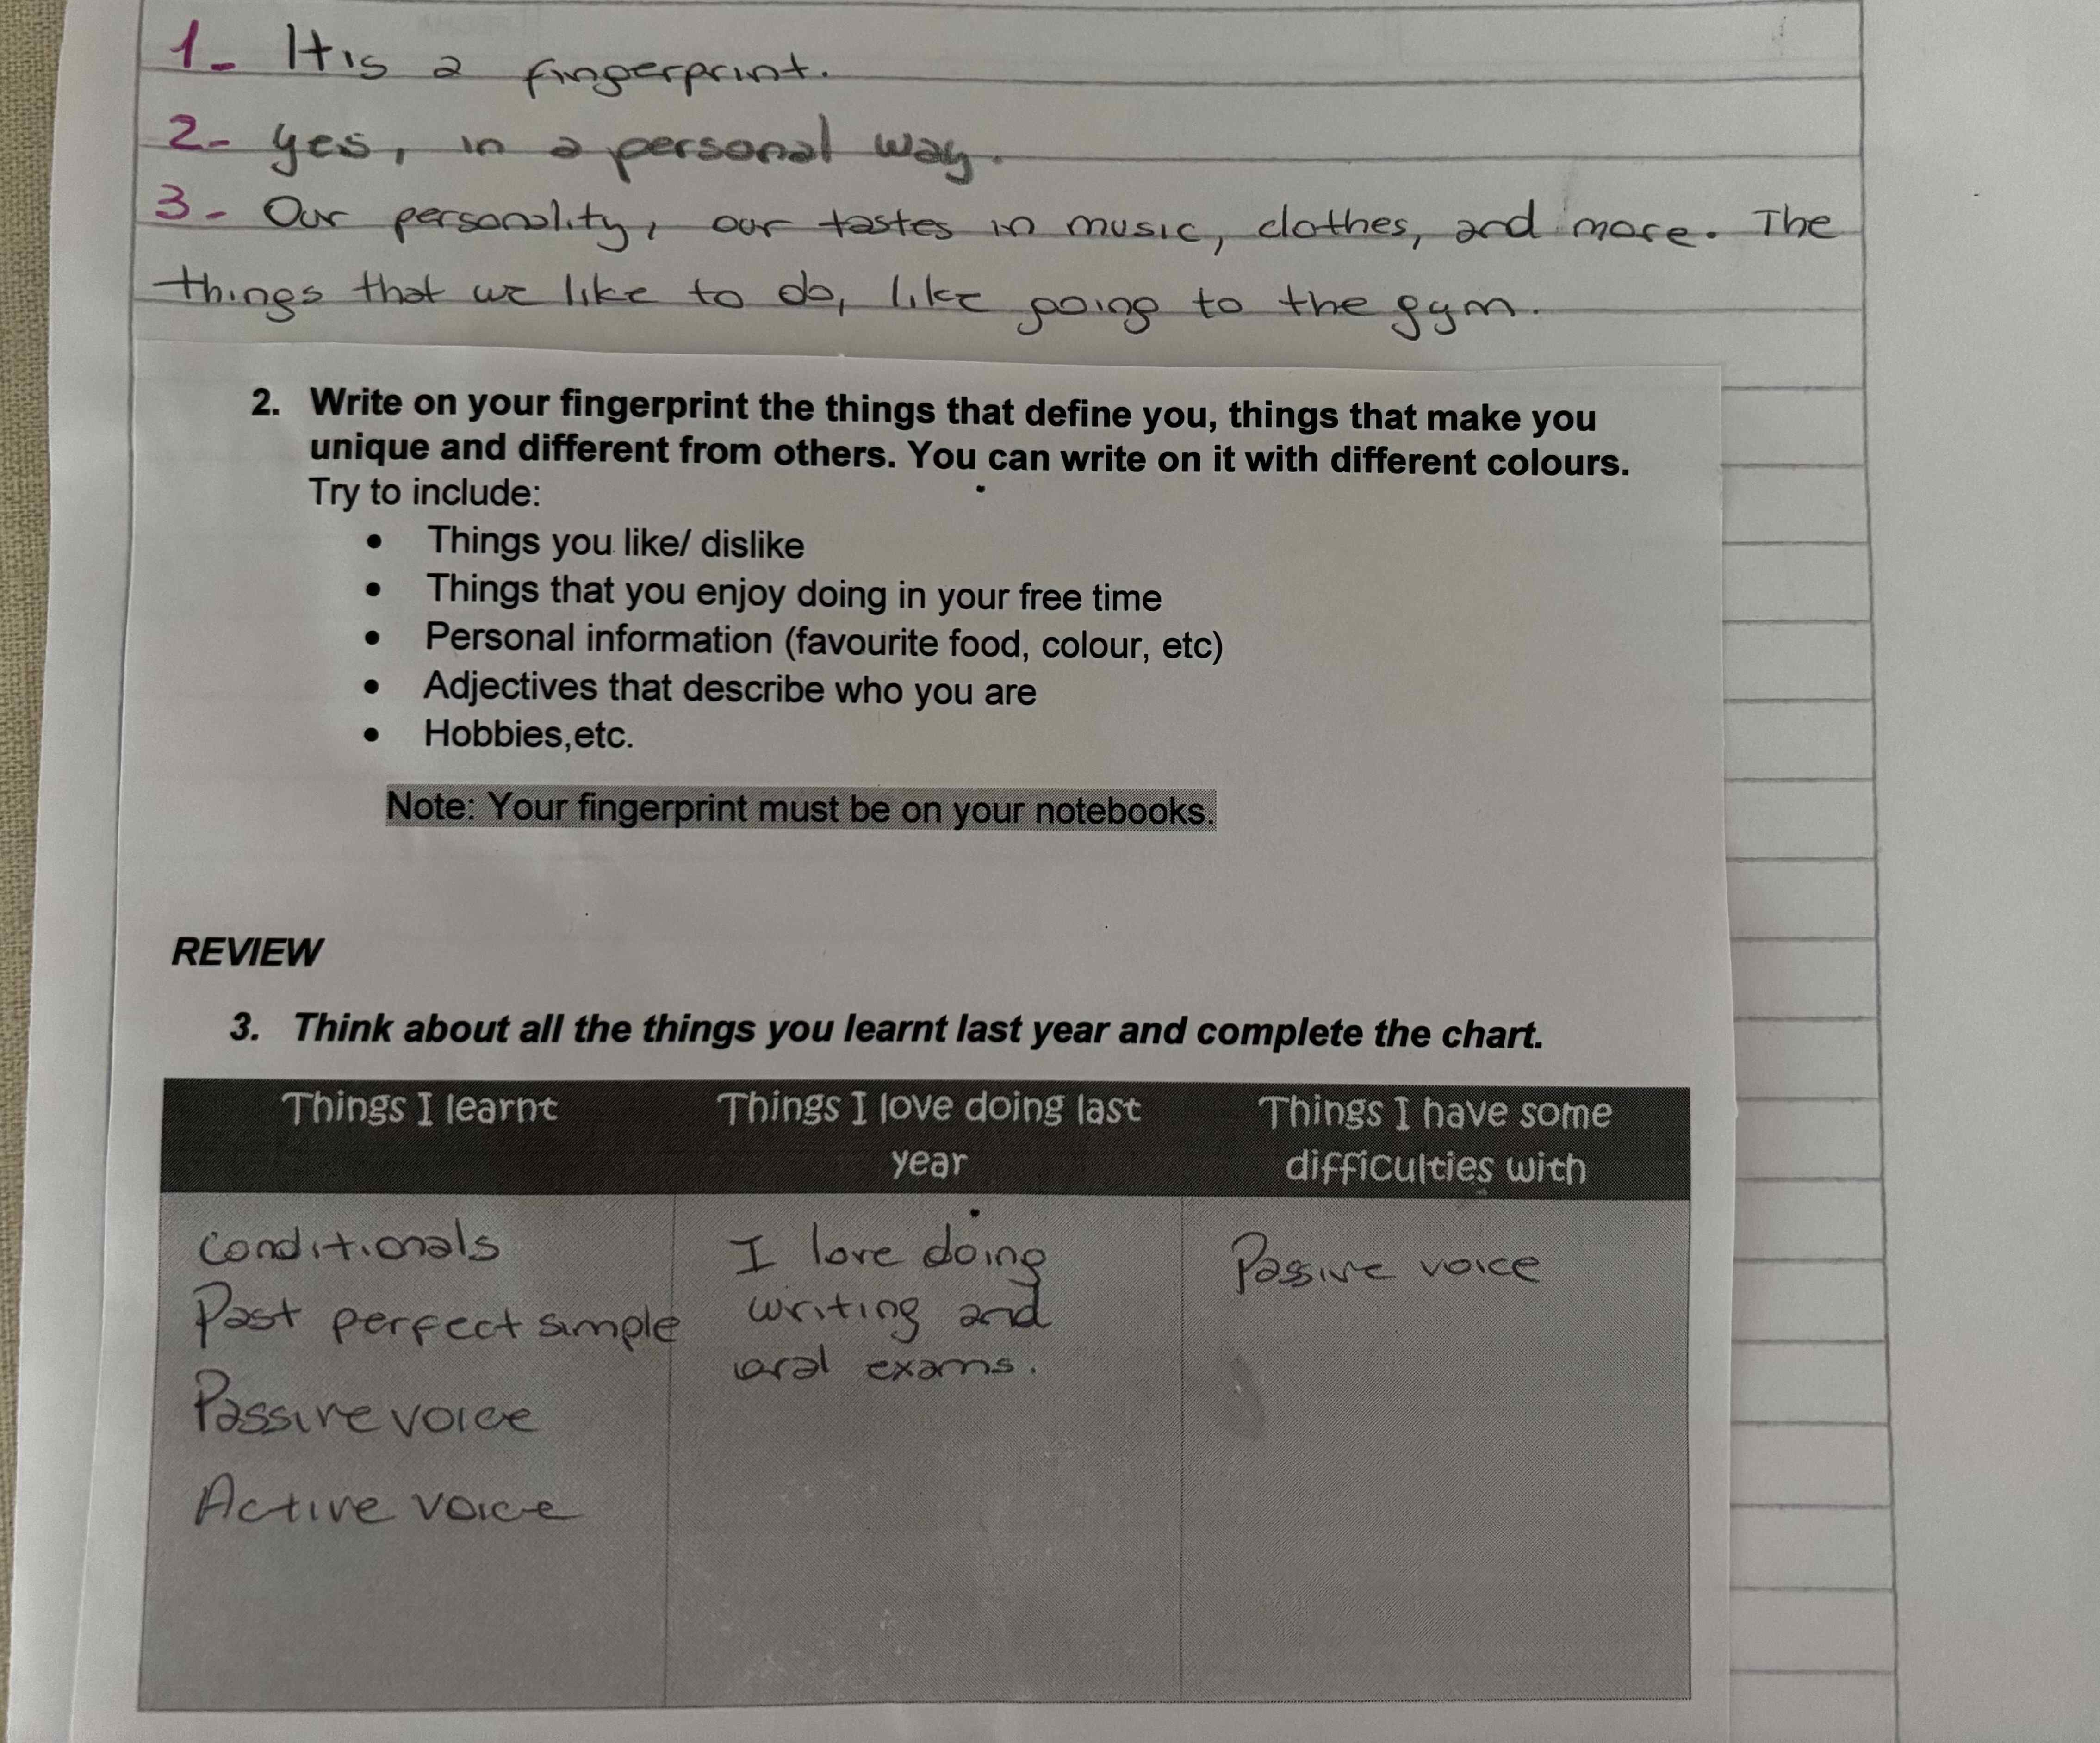 1- It is a fingerprint.
2- yes, in a personal way.
3- Our personality, our tastes in music, clothes, and more. The
things that we like to do, like going to the gym.
2. Write on your fingerprint the things that define you, things that make you
unique and different from others. You can write on it with different colours.
Try to include:
• Things you like/ dislike
• Things that you enjoy doing in your free time
• Personal information (favourite food, colour, etc)
• Adjectives that describe who you are
• Hobbies,etc.
Note: Your fingerprint must be on your notebooks.
REVIEW
3. Think about all the things you learnt last year and complete the chart.
Things I learnt
Things I love doing last
year
Things I have some
difficulties with
Conditionals
Past perfect simple
Passive voice
Active voice
I love doing
writing and
oral exams.
Passive voice